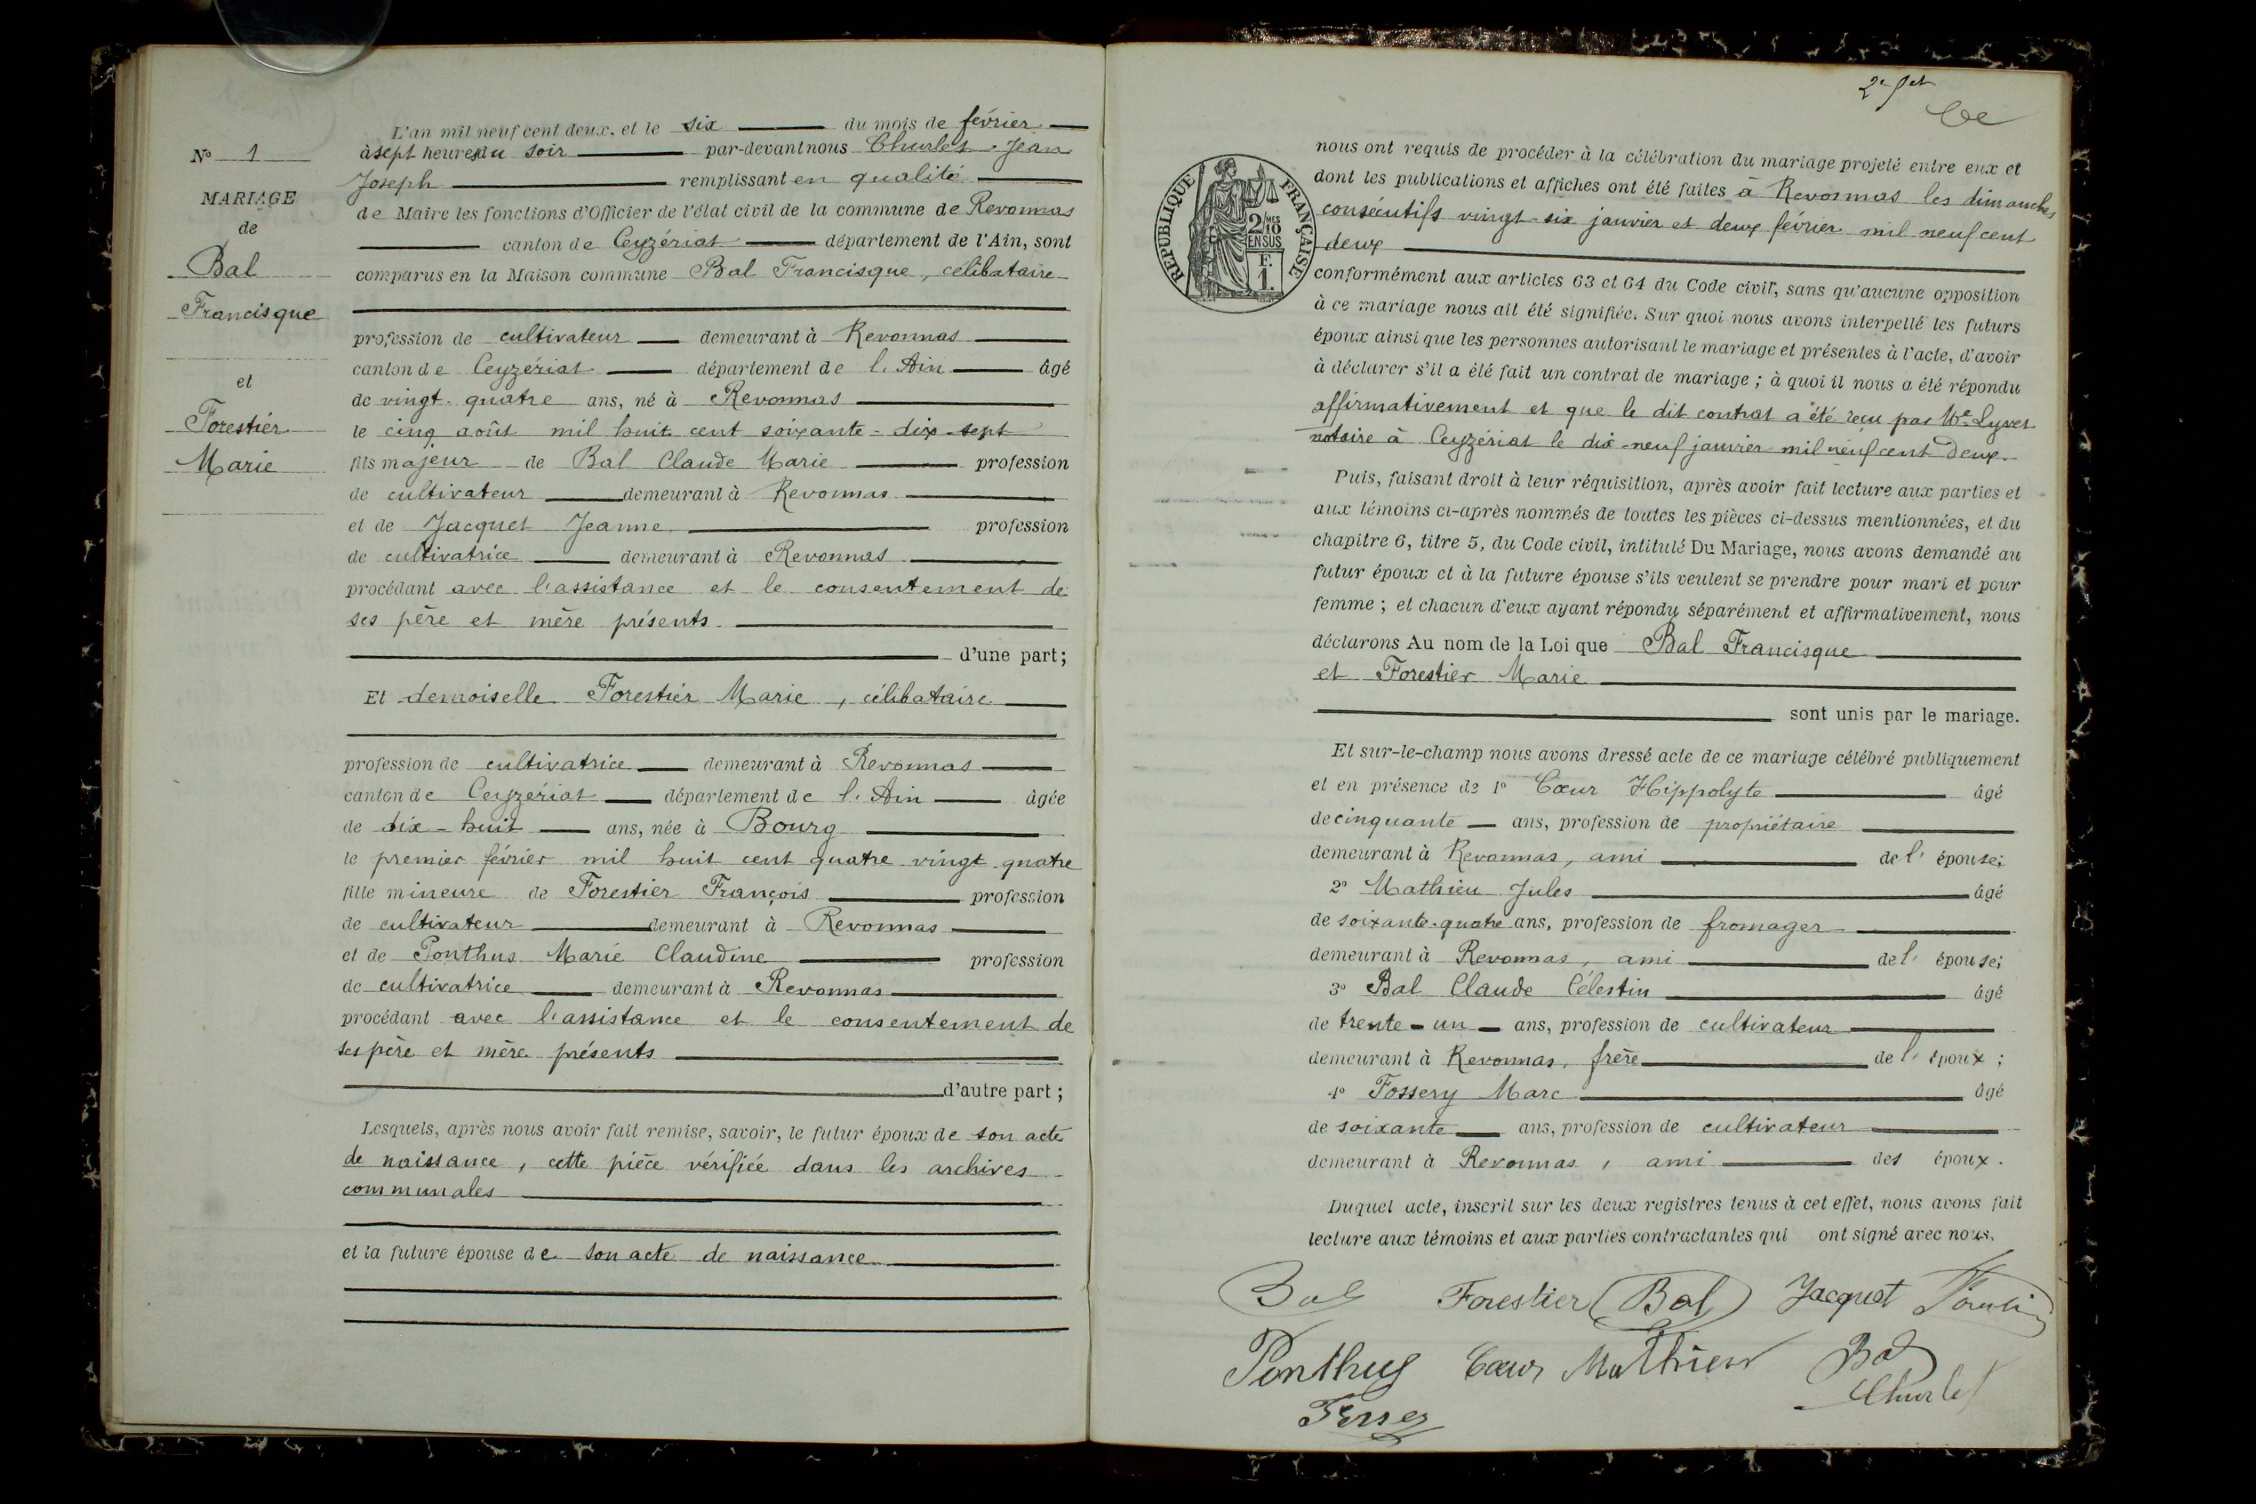 L'an mil neuf cent deux. et le six du mois de février
à sept heures du soir par-devant nous Churlet Jean
Joseph remplissant en qualité
de Maire les fonctions d'Officier de l'état civil de la commune de Revonnas
canton de Ceyzériat département de l'Ain, sont
comparus en la Maison commune Bal Francisque, célibataire
profession de cultivateur demeurant à Revonnas
canton de Ceyzériat département de l'Ain âgé
de vingt-quatre ans, né à Revonnas
le cinq août mil huit cent soixante-dix-sept
fils majeur de Bal Claude Marie profession
de cultivateur demeurant à Revonnas
et de Jacquet Jeanne profession
de cultivatrice demeurant à Revonnas
procédant avec l'assistance et le consentement de
ses père et mère présents
d'une part;
Et demoiselle Forestier Marie, célibataire
profession de cultivatrice demeurant à Revonnas
canton de Ceyzériat département de l'Ain âgée
de dix-huit ans, née à Bourg
le premier février mil huit cent quatre vingt quatre
fille mineure de Forestier François profession
de cultivateur demeurant à Revonnas
et de Ponthus Marie Claudine profession
de cultivatrice demeurant à Revonnas
procédant avec l'assistance et le consentement de
ses père et mère présents
d'autre part;
Lesquels, après nous avoir fait remise, savoir, le futur époux de son acte
de naissance, cette pièce vérifiée dans les archives
communales
et la future épouse de son acte de naissance
No 1
MARIAGE
de
Bal
Francisque
et
Forestier
Marie
RÉPUBLIQUE FRANÇAISE
2/10 MES
EN SUS
F.
1.
nous ont requis de procéder à la célébration du mariage projeté entre eux et
dont les publications et affiches ont été faites à Revonnas les dimanches
consécutifs vingt-six janvier et deux février mil neuf cent
deux
conformément aux articles 63 et 64 du Code civil, sans qu'aucune opposition
à ce mariage nous ait été signifiée. Sur quoi nous avons interpellé les futurs
époux ainsi que les personnes autorisant le mariage et présentes à l'acte, d'avoir
à déclarer s'il a été fait un contrat de mariage; à quoi il nous a été répondu
affirmativement et que le dit contrat a été reçu par Me Lyvet
notaire à Ceyzériat le dix-neuf janvier mil neuf cent deux.
Puis, faisant droit à leur réquisition, après avoir fait lecture aux parties et
aux témoins ci-après nommés de toutes les pièces ci-dessus mentionnées, et du
chapitre 6, titre 5, du Code civil, intitulé Du Mariage, nous avons demandé au
futur époux et à la future épouse s'ils veulent se prendre pour mari et pour
femme; et chacun d'eux ayant répondu séparément et affirmativement, nous
déclarons Au nom de la Loi que Bal Francisque
et Forestier Marie
sont unis par le mariage.
Et sur-le-champ nous avons dressé acte de ce mariage célébré publiquement
et en présence de 1° Cœur Hippolyte âgé
de cinquante ans, profession de propriétaire
demeurant à Revonnas, ami de l'épouse;
2° Mathieu Jules âgé
de soixante-quatre ans, profession de fromager
demeurant à Revonnas, ami de l'épouse;
3° Bal Claude Célestin âgé
de trente-un ans, profession de cultivateur
demeurant à Revonnas, frère de l'époux;
4° Fossery Marc âgé
de soixante ans, profession de cultivateur
demeurant à Revonnas, ami des époux.
Duquel acte, inscrit sur les deux registres tenus à cet effet, nous avons fait
lecture aux témoins et aux parties contractantes qui ont signé avec nous.
Bal Forestier Bal Jacquet
Ponthus Cœur Mathieu Bal
Churlet